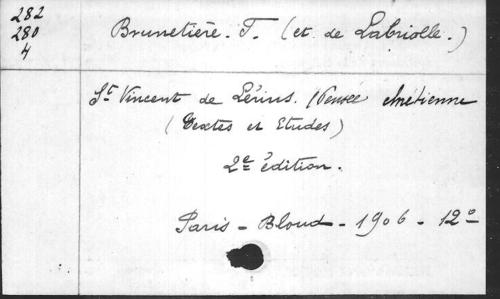 282
280
4
Brunetière. F. (et. de Labriolle.)
St Vincent de Lérins. (Pensée chrétienne
(Textes et Etudes)
2e édition.
Paris - Bloud - 1906 - 12o